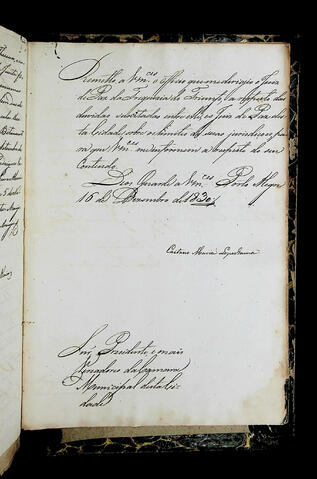 Remetto a Vm.ces o Officio que me dirigio o Juiz
de Paz da Freguezia do Triumpho, a respeito das
duvidas suscitadas entre elle, e o Juiz de Paz des-
ta Cidade, sobre os limites de suas jurisdições pa-
ra que Vm.ces me informem a respeito do seu
Contheudo.
Deos Guarde a Vm.ces Porto Alegre
16 de Dezembro de 1830
Caetano Maria Lopes Gama
Snr. Prezidente e mais
Vereadores da Camara
Municipal desta Ci-
dade